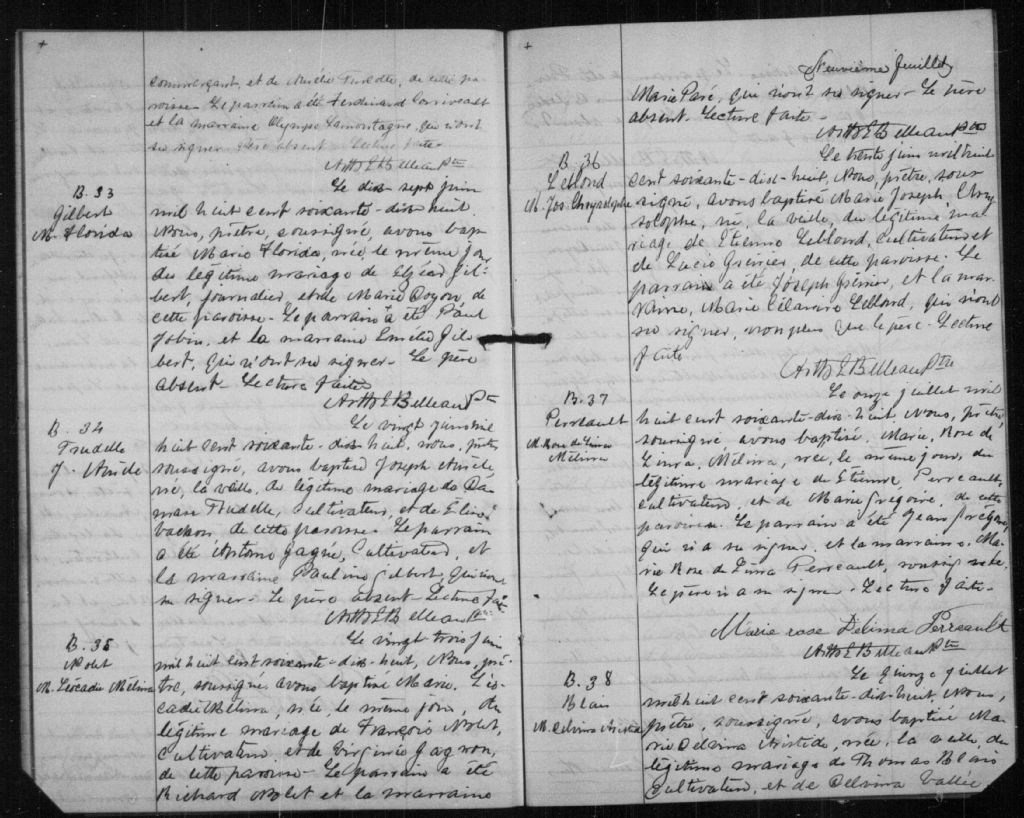 commerçant, et de Aurélie Turcotte, de cette pa-
roisse. Le parrain a été Ferdinand Corriveault
et la marraine Olympe Lamontagne, qui n'ont
su signer. Père absent. Lecture faite.
Arth E Belleau Ptre
B. 33
Gilbert
M. Florida
Le dix-sept juin
mil huit cent soixante-dix-huit.
Nous, prêtre, soussigné, avons bap-
tisé Marie Florida, née le même jour
du légitime mariage de Elzéar Gil-
bert, journalier, et de Marie Dogon, de
cette paroisse. Le parrain a été Paul
Jobin, et la marraine Emélie Gil-
bert, qui n'ont su signer. Le père
absent. Lecture faite
Arth E Belleau Ptre
B. 34
Trudelle
J. Aurèle
Le vingt juin mil
huit cent soixante-dix-huit, nous, prêtre,
soussigné, avons baptisé Joseph Aurèle
né, la veille, du légitime mariage de Da-
mase Trudelle, cultivateur, et de
de cette paroisse. Le parrain
a été Antoine Gagné, Cultivateur, et
la marraine Pauline Gilbert, qui n'ont
su signer. Le père absent. Lecture faite
Arth E Belleau Ptre
B. 35
Nolet
M. Léocadie Mélina
Le vingt trois juin
mil huit cent soixante-dix-huit, Nous, prê-
tre, soussigné, avons baptisé Marie Léo-
cadie Mélina, née, le même jour, du
légitime mariage de François Nolet,
Cultivateur et de Virginie Gagnon,
de cette paroisse. Le parrain a été
Richard Nolet et la marraine
Neuvième feuillet
Marie Paré, qui n'ont su signer. Le père
absent. Lecture faite.
Arth E Belleau Ptre
B. 36
Leblond
M. Jos Chrysolophe
Le trente juin mil huit
cent soixante-dix-huit, Nous, prêtre, sous-
signé, avons baptisé Marie Joseph, Chry-
solophe, né, la veille, du légitime ma-
riage de Etienne Leblond, cultivateur et
de Lucie Grenier, de cette paroisse. Le
parrain a été Joseph Grenier, et la mar-
raine, Marie Célanire Leblond, qui n'ont
su signer, non plus que le père. Lecture
faite
Arth E Belleau Ptre
B. 37
Perreault
M. Rose de Lima
Mélina
Le onze juillet mil
huit cent soixante-dix-huit, Nous, prêtre,
soussigné avons baptisé, Marie, Rose de
Lima, Mélina, née, le même jour, du
légitime mariage de Etienne Perreault,
cultivateur, et de Marie Grégoire, de cette
paroisse. Le parrain a été Jean Grégoire,
qui n'a su signer, et la marraine, Ma-
rie Rose de Lima Perreault, soussignée.
Le père n'a su signer. Lecture faite.
Marie rose Delima Perreault
Arth E Belleau Ptre
B. 38
Blais
M. Delvina Aristide
Le quinze juillet
mil huit cent soixante-dix-huit, Nous,
prêtre, soussigné, avons baptisé Ma-
rie Delvina Aristide, née, la veille, du
légitime mariage de Thomas Blais
Cultivateur, et de Delvina Vallée